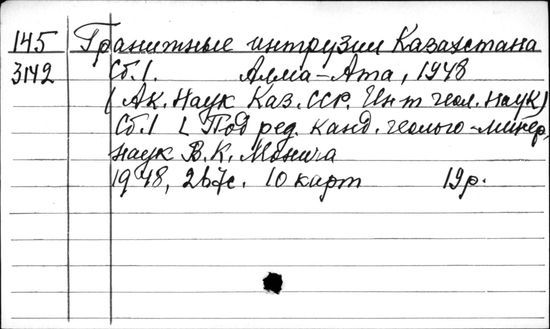 145 Гранитные интрузии Казахстана
3142 Сб.1. Алма-Ата, 1948
(Ак. Наук Каз. ССР. Ин-т геол. наук)
Сб.1 [Под ред. канд. геолого-минер.
наук В.К. Монича
1948, 267с. 10 карт 19р.